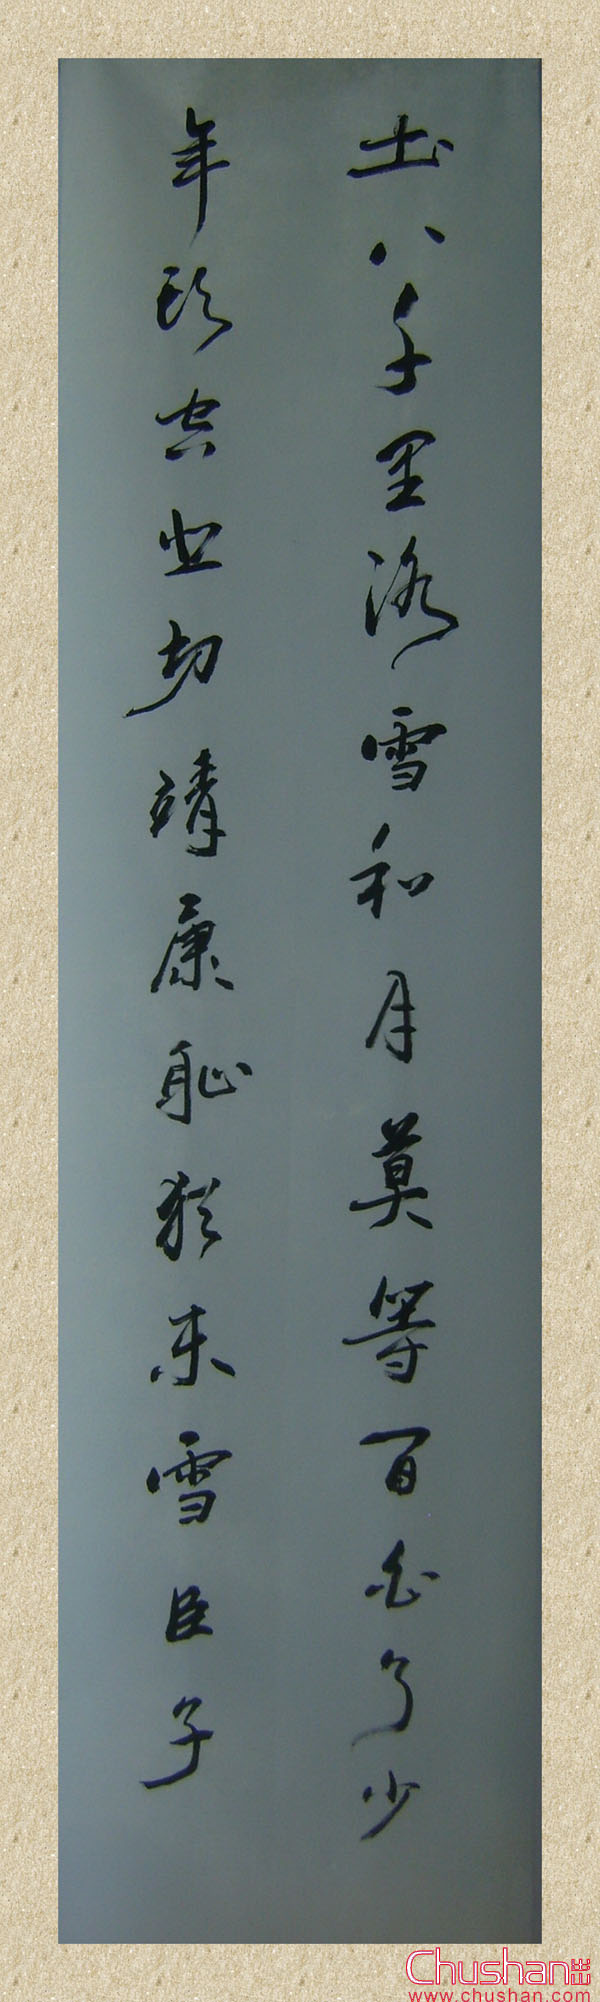 土八千里路雲和月莫等閒白了少
年頭空悲切靖康耻猶未雪臣子
Chushan
www.chushan.com